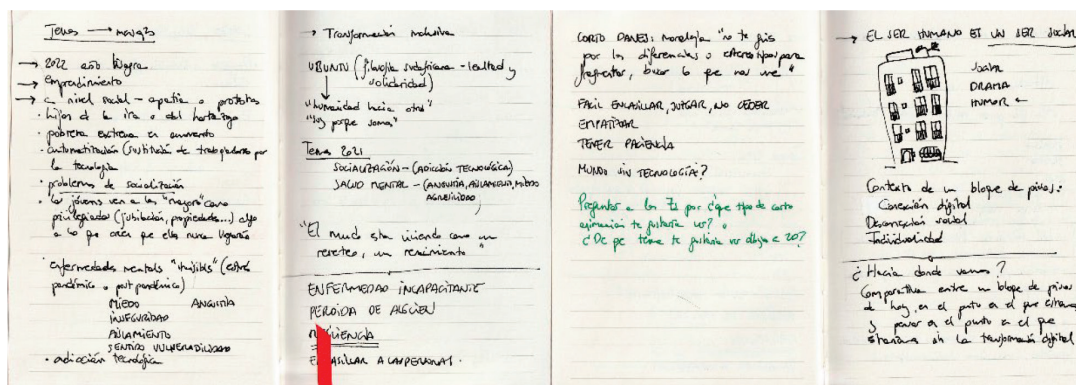 Temas → marzo
→ 2022 año
→ emprendimiento
→ a nivel social - apatía o protestas
· hijos de la ira o del hartazgo
· pobreza extrema en aumento
· automatización (sustitución de trabajadores por
la tecnología
· problemas de socialización
· los jóvenes ven a los "mayores" como
privilegiados (jubilación, propiedades...) algo
a lo que creen que ellos nunca llegarán
· enfermedades mentales (estrés
pandémico o post pandémico)
MIEDO ANGUSTIA
INSEGURIDAD
AISLAMIENTO
SENTIRSE VULNERABILIDAD
· adicción tecnológica
→ Transformación inclusiva
UBUNTU (filosofía sudafricana - lealtad y
solidaridad)
"humanidad hacia otros"
"soy porque somos"
Temas 2021
SOCIALIZACIÓN - (ADICCIÓN TECNOLÓGICA)
SALUD MENTAL - (ANGUSTIA, AISLAMIENTO, MIEDO
AGRESIVIDAD)
"El mundo está viviendo como un
reseteo, un renacimiento"
ENFERMEDAD INCAPACITANTE
PERDIDA DE ALGUIEN
ENCASILLAR A LAS PERSONAS.
CORTO DANES: moraleja "no te fijes
por las diferencias o estereotipos para
fragmentar, busca lo que nos une"
FACIL ENCASILLAR, JUZGAR, NO CEDER
EMPATIZAR
TENER PACIENCIA
MUNDO SIN TECNOLOGÍA?
Preguntar a los Z por ¿que tipo de corto
animación te gustaría ver? o
¿De que tema te gustaría ver dibujos 2D?
→ EL SER HUMANO ES UN SER SOCIAL
DRAMA
HUMOR ←
Contexto de un bloque de pisos:
Conexión digital
Desconexión social
Individualidad
¿Hacia donde vamos?
Comparativa entre un bloque de pisos
de hoy, en el punto en el que estamos
y pasar a el punto en el que
estaríamos sin la transformación digital